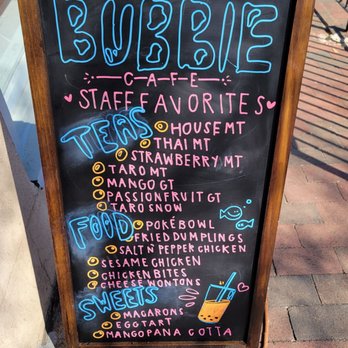 BUBBIE
CAFE
STAFF FAVORITES
TEAS
HOUSE MT
THAI MT
STRAWBERRY MT
TARO MT
MANGO GT
PASSIONFRUIT GT
TARO SNOW
FOOD
POKÉ BOWL
FRIED DUMPLINGS
SALT N PEPPER CHICKEN
SESAME CHICKEN
CHICKEN BITES
CHEESE WONTONS
SWEETS
MACARONS
EGG TART
MANGO PANA COTTA